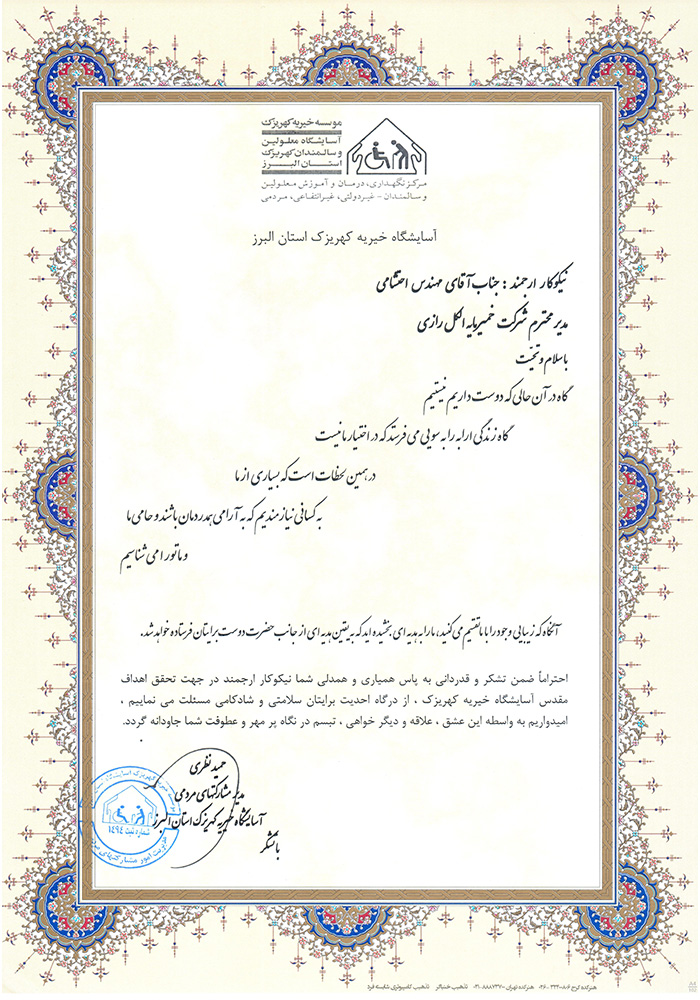 موسسه خیریه کهریزک
آسایشگاه معلولین
و سالمندان کهریزک
استان البرز
مرکز نگهداری، درمان و آموزش معلولین
و سالمندان - غیردولتی، غیرانتفاعی، مردمی
آسایشگاه خیریه کهریزک استان البرز
نیکوکار ارجمند : جناب آقای مهندس احتشامی
مدیر محترم شرکت خمیرمایه الکل رازی
با سلام و تحیت
گاه در آن حالی که دوست داریم نیستیم
گاه زندگی ارابه را به سویی می فرستد که در اختیار ما نیست
در همین لحظات است که بسیاری از ما
به کسانی نیازمندیم که به آرامی همدردمان باشند و حامی ما
و ما تو را می شناسیم
آنگاه که زیبایی وجود را با ما تقسیم می کنید، ما را به هدیه ای بخشیده اید که به یقین هدیه ای از جانب حضرت دوست برایتان فرستاده خواهد شد.
احتراماً ضمن تشکر و قدردانی به پاس همیاری و همدلی شما نیکوکار ارجمند در جهت تحقق اهداف
مقدس آسایشگاه خیریه کهریزک ، از درگاه احدیت برایتان سلامتی و شادکامی مسئلت می نماییم ،
امیدواریم به واسطه این عشق ، علاقه و دیگر خواهی ، تبسم در نگاه پر مهر و عطوفت شما جاودانه گردد.
حمید نظری
مدیر مشارکتهای مردمی
آسایشگاه خیریه کهریزک استان البرز
با تشکر
شماره ثبت ۱۴۹۴
مدیریت امور مشارکتهای